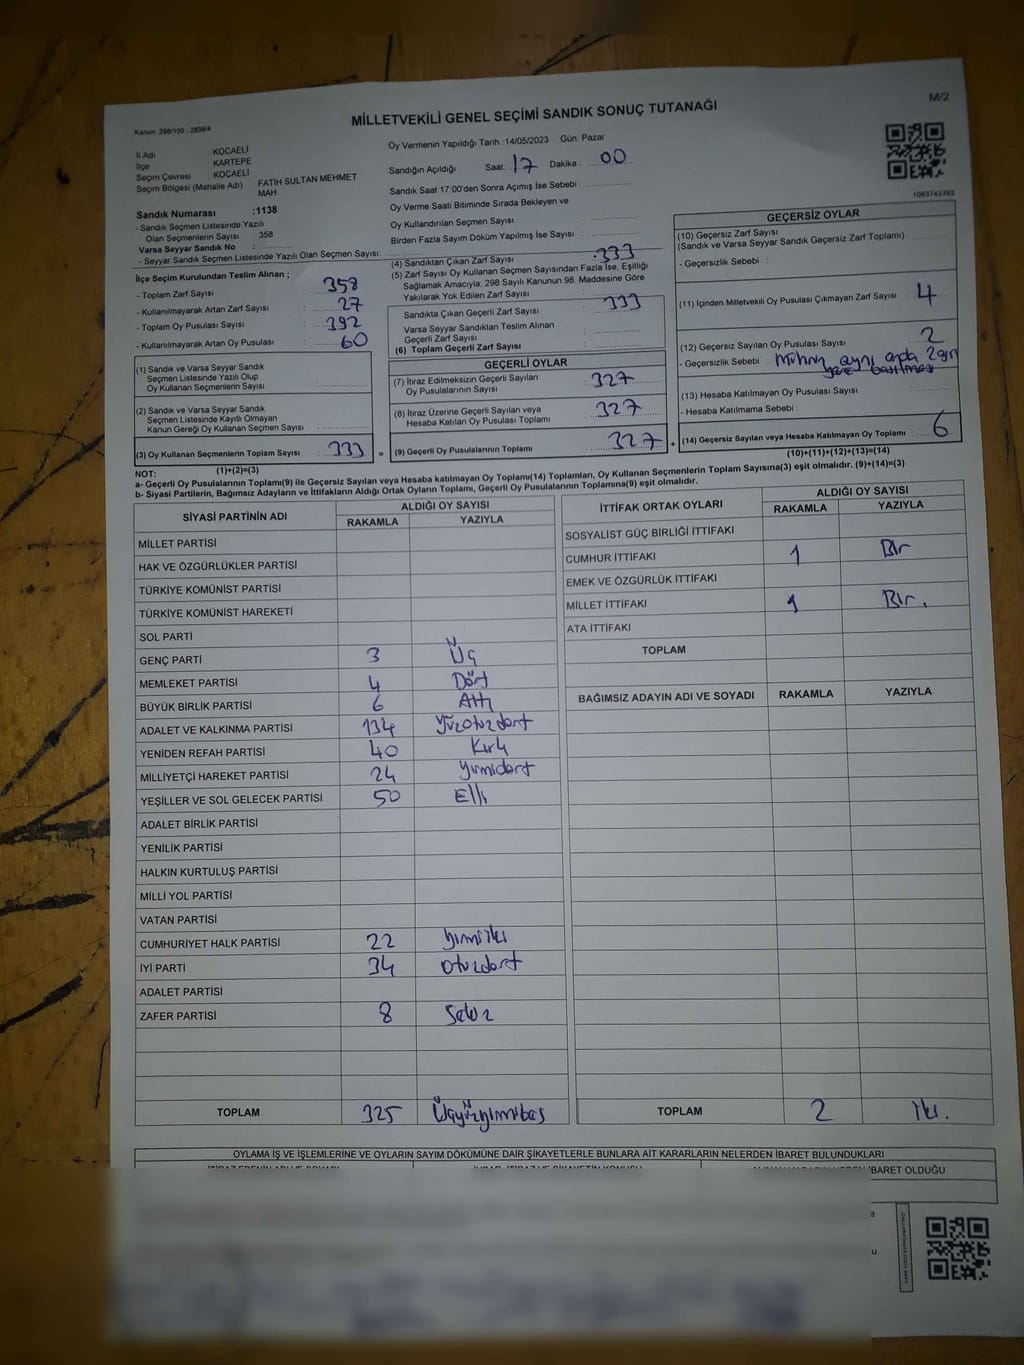 M/2
Kanun: 298/105 , 2839/4
MİLLETVEKİLİ GENEL SEÇİMİ SANDIK SONUÇ TUTANAĞI
İl Adı : KOCAELİ
İlçe : KARTEPE
Seçim Çevresi : KOCAELİ
Seçim Bölgesi (Mahalle Adı) FATİH SULTAN MEHMET MAH
Sandık Numarası :1138
- Sandık Seçmen Listesinde Yazılı
Olan Seçmenlerin Sayısı : 358
Varsa Seyyar Sandık No :
- Seyyar Sandık Seçmen Listesinde Yazılı Olan Seçmen Sayısı:
Oy Vermenin Yapıldığı Tarih :14/05/2023 Gün: Pazar
Sandığın Açıldığı Saat: 17 Dakika : 00
Sandık Saat 17:00'den Sonra Açımış İse Sebebi :
Oy Verme Saati Bitiminde Sırada Bekleyen ve
Oy Kullandırılan Seçmen Sayısı :
Birden Fazla Sayım Döküm Yapılmış İse Sayısı :
1083743763
İlçe Seçim Kurulundan Teslim Alınan ;
- Toplam Zarf Sayısı : 358
- Kullanılmayarak Artan Zarf Sayısı : 27
- Toplam Oy Pusulası Sayısı : 392
- Kullanılmayarak Artan Oy Pusulası : 60
(1) Sandık ve Varsa Seyyar Sandık
Seçmen Listesinde Yazılı Olup
Oy Kullanan Seçmenlerin Sayısı :
(2) Sandık ve Varsa Seyyar Sandık
Seçmen Listesinde Kayıtlı Olmayan
Kanun Gereği Oy Kullanan Seçmen Sayısı :
(3) Oy Kullanan Seçmenlerin Toplam Sayısı : 333
(1)+(2)=(3)
(4) Sandıktan Çıkan Zarf Sayısı : 333
(5) Zarf Sayısı Oy Kullanan Seçmen Sayısından Fazla İse, Eşitliği
Sağlamak Amacıyla; 298 Sayılı Kanunun 98. Maddesine Göre
Yakılarak Yok Edilen Zarf Sayısı :
Sandıkta Çıkan Geçerli Zarf Sayısı : 333
Varsa Seyyar Sandıktan Teslim Alınan
Geçerli Zarf Sayısı :
(6) Toplam Geçerli Zarf Sayısı :
GEÇERLİ OYLAR
(7) İtiraz Edilmeksizin Geçerli Sayılan
Oy Pusulalarının Sayısı : 327
(8) İtiraz Üzerine Geçerli Sayılan veya
Hesaba Katılan Oy Pusulası Toplamı : 327
= (9) Geçerli Oy Pusulalarının Toplamı : 327 +
GEÇERSİZ OYLAR
(10) Geçersiz Zarf Sayısı
(Sandık ve Varsa Seyyar Sandık Geçersiz Zarf Toplamı) :
- Geçersizlik Sebebi :
(11) İçinden Milletvekili Oy Pusulası Çıkmayan Zarf Sayısı : 4
(12) Geçersiz Sayılan Oy Pusulası Sayısı : 2
- Geçersizlik Sebebi : Mührün aynı anda 2 ayrı
yere basılması
(13) Hesaba Katılmayan Oy Pusulası Sayısı :
- Hesaba Katılmama Sebebi :
(14) Geçersiz Sayılan veya Hesaba Katılmayan Oy Toplamı : 6
(10)+(11)+(12)+(13)=(14)
NOT:
a- Geçerli Oy Pusulalarının Toplamı(9) ile Geçersiz Sayılan veya Hesaba katılmayan Oy Toplamı(14) Toplamları, Oy Kullanan Seçmenlerin Toplam Sayısına(3) eşit olmalıdır. (9)+(14)=(3)
b- Siyasi Partilerin, Bağımsız Adayların ve İttifakların Aldığı Ortak Oyların Toplamı, Geçerli Oy Pusulalarının Toplamına(9) eşit olmalıdır.
SİYASİ PARTİNİN ADI ALDIĞI OY SAYISI
RAKAMLA YAZIYLA
MİLLET PARTİSİ
HAK VE ÖZGÜRLÜKLER PARTİSİ
TÜRKİYE KOMÜNİST PARTİSİ
TÜRKİYE KOMÜNİST HAREKETİ
SOL PARTİ
GENÇ PARTİ 3 Üç
MEMLEKET PARTİSİ 4 Dört
BÜYÜK BİRLİK PARTİSİ 6 Altı
ADALET VE KALKINMA PARTİSİ 134 Yüzotuzdört
YENİDEN REFAH PARTİSİ 40 Kırk
MİLLİYETÇİ HAREKET PARTİSİ 24 Yirmidört
YEŞİLLER VE SOL GELECEK PARTİSİ 50 Elli
ADALET BİRLİK PARTİSİ
YENİLİK PARTİSİ
HALKIN KURTULUŞ PARTİSİ
MİLLİ YOL PARTİSİ
VATAN PARTİSİ
CUMHURİYET HALK PARTİSİ 22 Yirmiiki
İYİ PARTİ 34 Otuzdört
ADALET PARTİSİ
ZAFER PARTİSİ 8 Sekiz
TOPLAM 325 Üçyüzyirmibeş
İTTİFAK ORTAK OYLARI ALDIĞI OY SAYISI
RAKAMLA YAZIYLA
SOSYALİST GÜÇ BİRLİĞİ İTTİFAKI
CUMHUR İTTİFAKI 1 Bir
EMEK VE ÖZGÜRLÜK İTTİFAKI
MİLLET İTTİFAKI 1 Bir.
ATA İTTİFAKI
TOPLAM
BAĞIMSIZ ADAYIN ADI VE SOYADI RAKAMLA YAZIYLA
TOPLAM 2 İki.
OYLAMA İŞ VE İŞLEMLERİNE VE OYLARIN SAYIM DÖKÜMÜNE DAİR ŞİKAYETLERLE BUNLARA AİT KARARLARIN NELERDEN İBARET BULUNDUKLARI
İBARET OLDUĞU